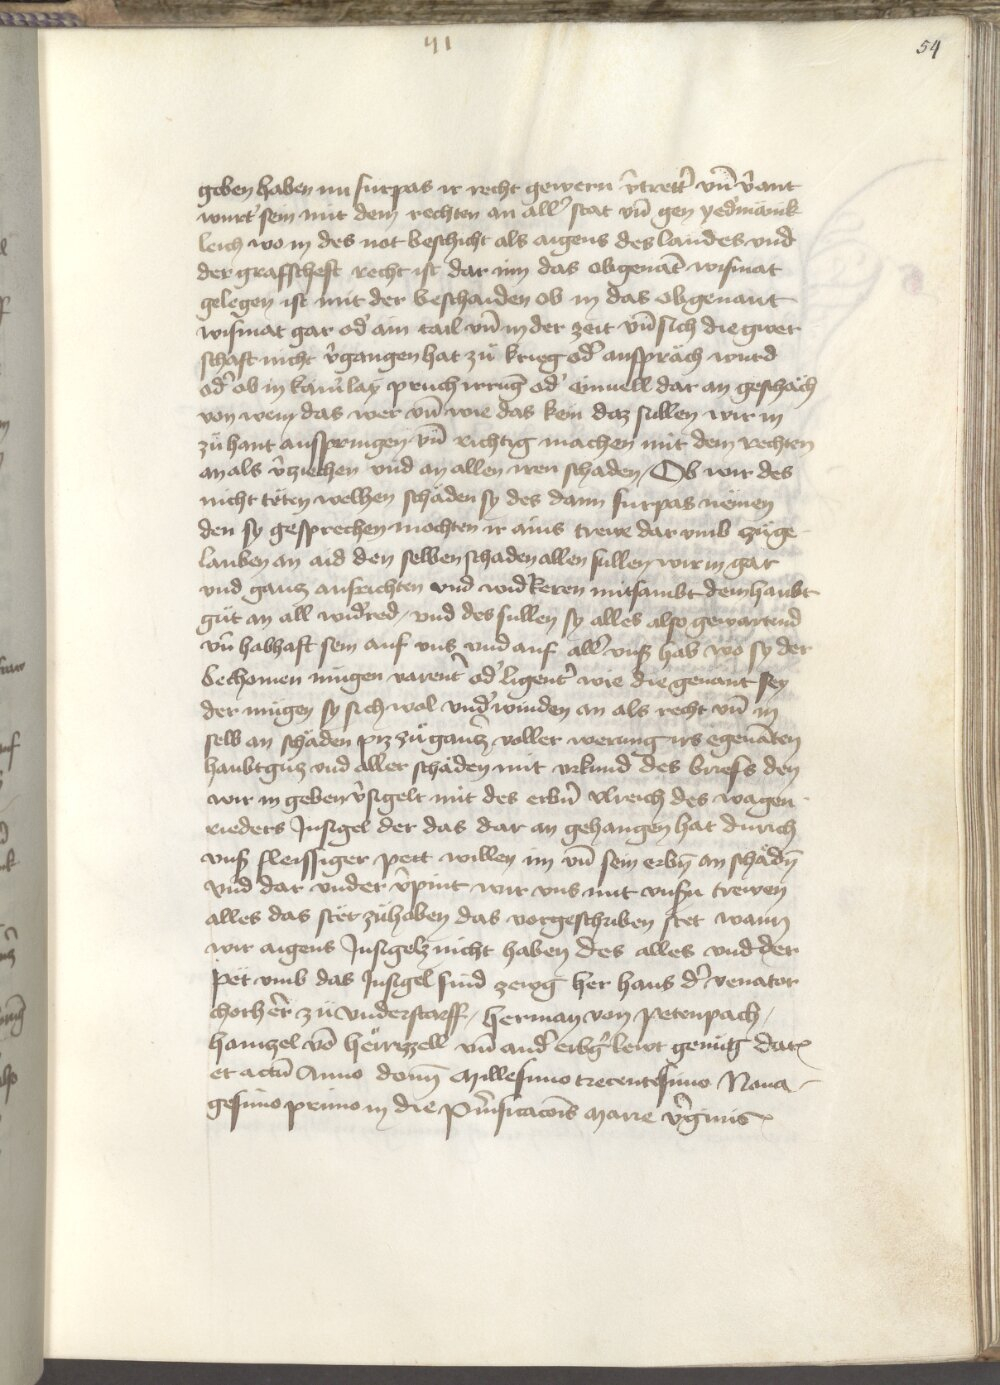 41
54
geben haben nu furpas ir recht gewern v̂trett' vn̄ v̂ant
wurt' sein mit dem rechten an all' stat vn̄ gen yed'mänik
leich wo in des not beschicht als aigens des landes vnd
der graffscheft recht ist dar inn das obgenāt wismat
gelegen ist mit der beschaiden ob in das obgenant
wismat gar od' ain tail vn̄ in der zeit vn̄ sich die gwer
schaft nicht v̂gangen hat zü krieg od' anspräch wurd
od' ob in kainlay pruch irrung od' einuell dar an geschäch
von wem das wer vn̄ wie das kem daz sullen wir in
zü hant ausspringen vn̄ richtig machen mit dem rechten
an als v̂ziechen vnd an allen iren schaden / Ob wir des
nicht täten welhen schäden sy des dann furpas nemen
den sy gesprechen mochten ir ains trewe dar vmb züge
lauben an aid den selben schaden allen sullen wir in gar
vnd gantz ausrichten vnd wid'keren mitsambt dem haubt
güt an all wid'red / vnd des sullen sy alles also gewartend
vn̄ habhaft sein auf vns vnd auf all' vnß hab wo sy der
bechomen mügen varent' od' ligent' wie die genant sey
der mügen sy sich wol vnd'winden an als recht vn̄ in
selb an schäden piz zü gantz' voller werung irs egenāten
haubtgutz vnd aller schäden mit vrkund des briefs den
wir in geben v̂sigelt mit des erb'n Vlreich des wagen
rieders Insigel der das dar an gehangen hat durich
vnß fleissiger pett willen im vn̄ sein erbn̄ an schädn̄
vnd dar vnder v̂pint wir vns mit vnsn trewen
alles das stët zühaben das vorgeschriben stet wann
wir aigens Insigelz nicht haben des alles vnd der
pët vmb das Insigel sind zewg her hans d' venator
chorher' zü vnderstorff / herman von petenpach /
haintzel vō herrtzell vn̄ and' erb'g' lewt genüg dat'
et actū Anno domī Millesimo trecentesimo Nona-
gesimo primo in die Pur̄ificacōis Marie v̂ginis